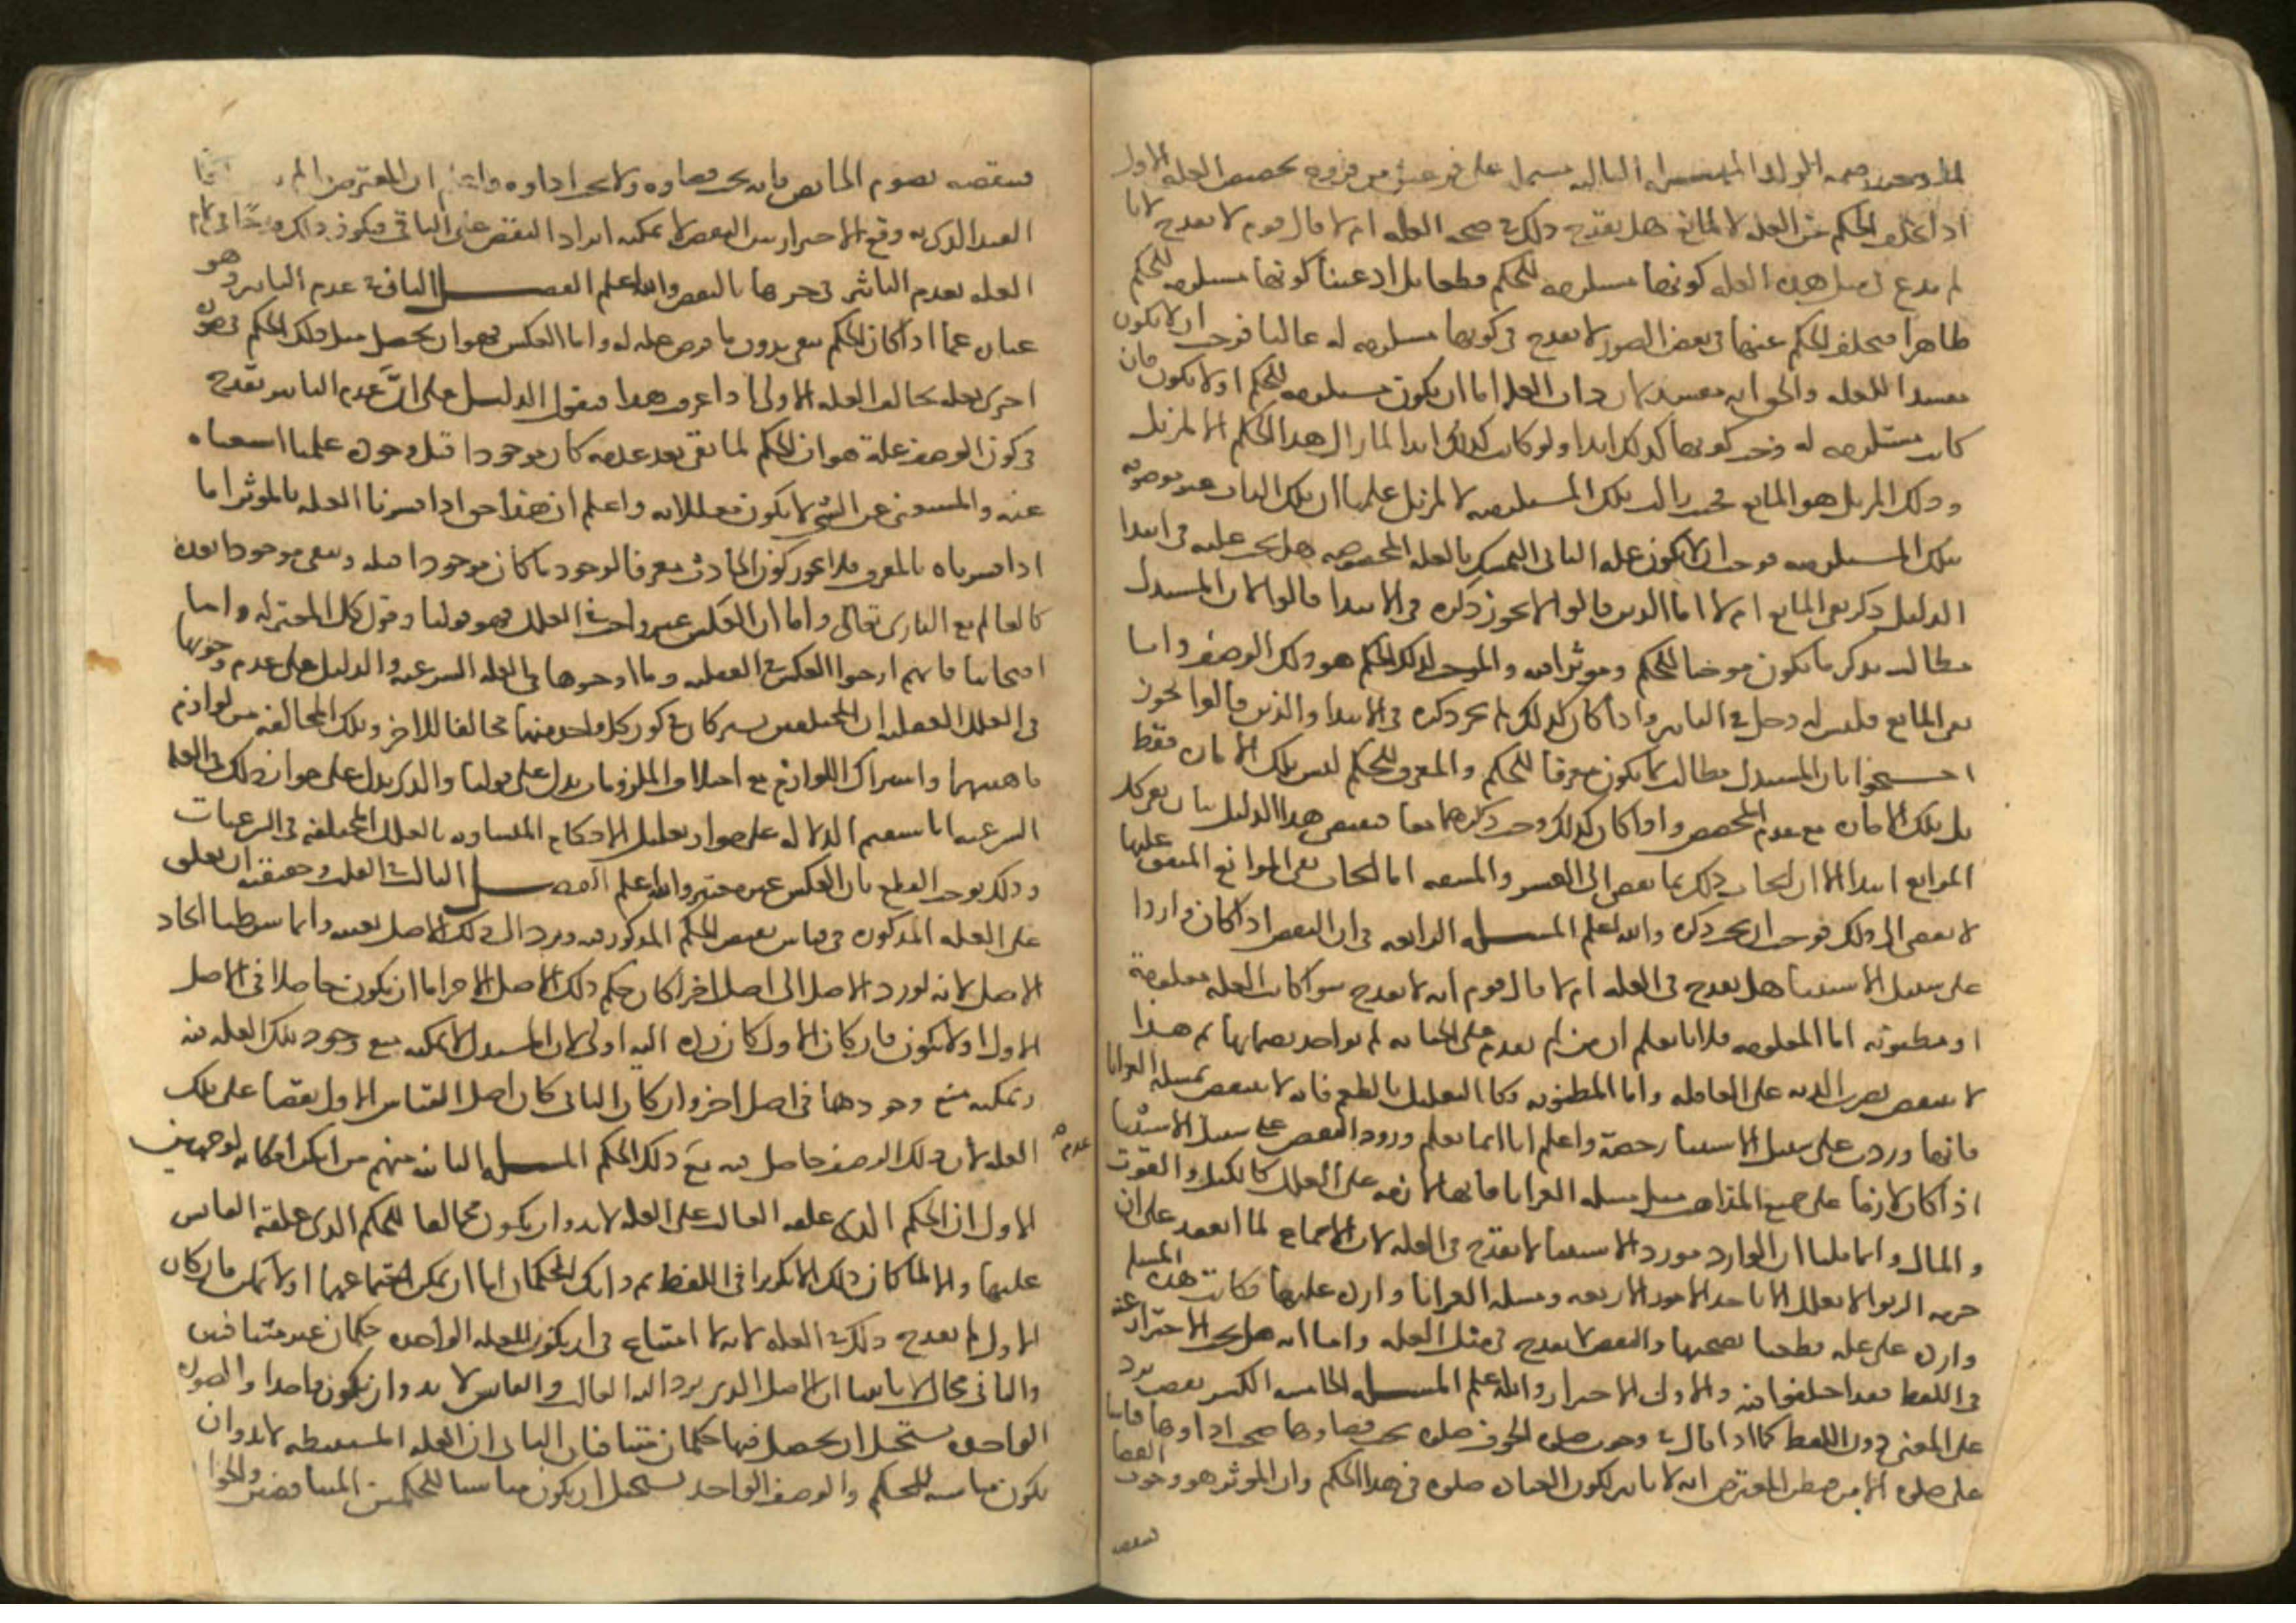 اذا تخلف الحكم عن العلة لا لمانع هل يقدح ذلك في صحة العلة ام لا قال قوم لا يقدح لانا
لم ندع في مثل هذه العلة كونها مستلزمة للحكم قطعا بل ادعينا كونها مستلزمة للحكم
ظاهرا فتخلف الحكم عنها في بعض الصور لا يقدح في كونها مستلزمة له غالبا فوجب ان لا يكون
مفسدا للعلة والحق انه مفسد لان ذات العلة اما ان يكون مستلزمة للحكم او لا يكون فان
كانت مستلزمة له وجب كونها كذلك ابدا ولو كانت كذلك ابدا لما زال هذا الحكم الا لمزيل
وذلك المزيل هو المانع فحيث زالت تلك المستلزمية لا لمزيل علمنا ان تلك الذات غير موصوفة
بتلك المستلزمية فوجب ان لا يكون علة الثاني المتمسك بالعلة المخصوصة هل يجب عليه في ابتدا
الدليل ذكر نفي المانع ام لا اما الذين قالوا لا يجوز ذكره في الابتدا قالوا لان المستدل
مطالب بذكر ما يكون موجبا للحكم ومؤثرا فيه والموجب لذلك الحكم هو ذلك الوصف واما
نفي المانع فليس له دخل في التاثير واذا كان كذلك لم يجز ذكره في الابتدا والذين قالوا يجوز
احتجوا بان المستدل مطالب بما يكون معرفا للحكم والمعرف للحكم ليس تلك الامارة فقط
بل تلك الامارة مع عدم المخصص واذا كان كذلك وجب ذكرهما معا فمقتضى هذا الدليل بيان نفي كل
الموانع ابتدا الا ان ايجاب ذلك مما يفضي الى العسر والمشقة اما ايجاب نفي الموانع المتفق عليها
لا يفضي الى ذلك فوجب ان يجب ذكره والله اعلم المسلة الرابعة في ان النقض اذا كان واردا
على سبيل الاستثنا هل يقدح في العلة ام لا قال قوم انه لا يقدح سوا كانت العلة معلومة
او مظنونة اما المعلومة فلانا نعلم ان من لم يقدم على الجناية لم يواخذ بضمانها ثم هذا
لا ينتقض بضرب الدية على العاقلة واما المظنونة فكالتعليل بالطعم فانه لا ينتقض بمسلة العرايا
فانها وردت على سبيل الاستثنا رخصة واعلم انا انما نعلم ورود النقض على سبيل الاستثنا
اذا كان لازما على جميع المذاهب مثل مسلة العرايا فانها لازمة على العلل كالكيل والقوت
والمال وانما قلنا ان الوارد مورد الاستثنا لا يقدح في العلة لان الاجماع لما انعقد على ان
حرمة الربوا لا تعلل الا باحد الامور الاربعة ومسلة العرايا واردة عليها فكانت هذه المسلة
واردة على علة قطعنا بصحتها والنقض لا يقدح في مثل العلة واما انه هل يجب الاحتراز عنه
في اللفظ فقد اختلفوا فيه والاولى الاحتراز والله اعلم المسلة الخامسة الكسر نقض يرد
على المعنى دون اللفظ كما اذا قال في وجوب صلوة الخوف صلوة يجب قضاوها فيجب اداوها قياسا
على صلوة الامن فيظن المعترض انه لا تاثير لكون العبادة صلوة في هذا الحكم وان الموثر هو وجوب القضا
فينقضه بصوم الحائض فانه يجب قضاوه ولا يجب اداوه واعلم ان المعترض
القيد الذي به وقع الاحتراز عن النقض لا يمكنه ايراد النقض على الباقي فيكون ذلك قدحا في تمام
العلة بعدم التاثير وفي جزءها بالنقض والله اعلم الفصل الثاني في عدم التاثير وهو
عبارة عما اذا كان الحكم يبقى بدون ما فرض علة له واما العكس فهو ان يحصل مثل ذلك الحكم في صورة
اخرى لعلة تخالف العلة الاولى اذا عرفت هذا فنقول الدليل على ان عدم التاثير يقدح
في كون الوصف علة هو ان الحكم لما بقي بعد عدمه كان موجودا قبل وجوده علمنا استغناه
عنه والمستغني عن الشي لا يكون معللا به واعلم ان هذا حق اذا فسرنا العلة بالموثر اما
اذا فسرناه بالمعرف فلا يجوز كون الحادث معرفا لوجود ما كان موجودا قبله ويبقى موجودا بعده
كالعالم مع الباري تعالى واما ان العكس غير واجب في العلل فهو قولنا وقول كل المعتزلة واما
اصحابنا فانهم اوجبوا العكس في العقلية وما اوجبوها في العلة الشرعية والدليل على عدم وجوبها
في العلل العقلية ان المختلفين يشتركان في كون كل واحد منهما مخالفا للاخر وتلك المخالفة من لوازم
ماهيتهما واشتراك اللوازم مع اختلاف الملزومات يدل على قولنا والذي يدل على جواز ذلك في العلة
الشرعية انا سنقيم الدلالة على جواز تعليل الاحكام المتساوية بالعلل المختلفة في الشرعيات
وذلك يوجب القطع بان العكس غير معتبر والله اعلم الفصل الثالث في القلب وحقيقته ان يعلق
على العلة المذكورة في قياس نقيض الحكم المذكور فيه ويرد الى ذلك الاصل بعينه وانما شرطنا اتحاد
الاصل لانه لو رد الاصل الى اصل اخر لكان حكم ذلك الاصل الاخر اما ان يكون حاصلا في الاصل
الاول او لا يكون فان كان الاول كان رده اليه اولى لان المستدل لا يمكنه منع وجود تلك العلة فيه
ويمكنه منع وجودها في اصل اخر وان كان الثاني كان اصل القياس الاول نقضا على تلك
العلة لان ذلك الوصف حاصل فيه مع عدم ذلك الحكم المسلة الثانية منهم من انكر امكانه لوجهين
الاول ان الحكم الذي علقه القالب على العلة لا بد وان يكون مخالفا للحكم الذي علقه القايس
عليها والا لما كان ذلك الا تكريرا في اللفظ ثم ذانك الحكمان اما ان يمكن اجتماعهما او لا يمكن فان كان
الاول لم يقدح ذلك في العلة لانه لا امتناع في ان يكون للعلة الواحدة حكمان غير متنافيين
والثاني محال لانا بينا ان الاصل الذي يرد اليه القالب والقايس لا بد وان يكون واحدا والصورة
الواحدة يستحيل ان يحصل فيها حكمان متنافيان الثاني ان العلة المستنبطة لا بد وان
يكون مناسبة للحكم والوصف الواحد يستحيل ان يكون مناسبا للحكمين المتنافيين والجوا